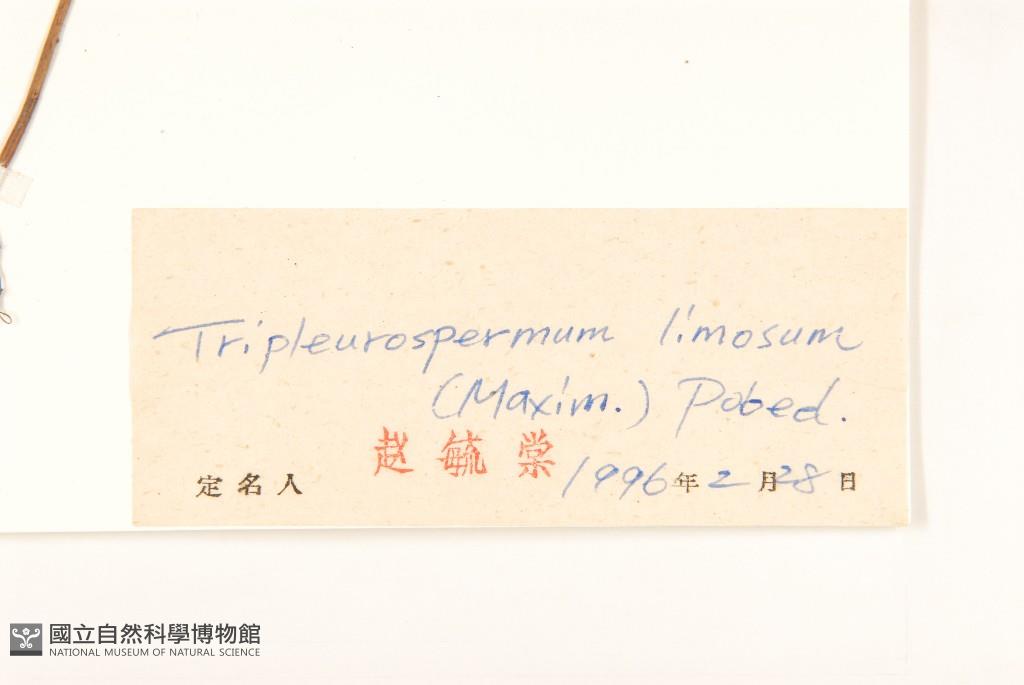 Tripleurospermum limosum
(Maxim.) Pobed.
定名人 赵毓棠 1996年2月28日
國立自然科學博物館
NATIONAL MUSEUM OF NATURAL SCIENCE